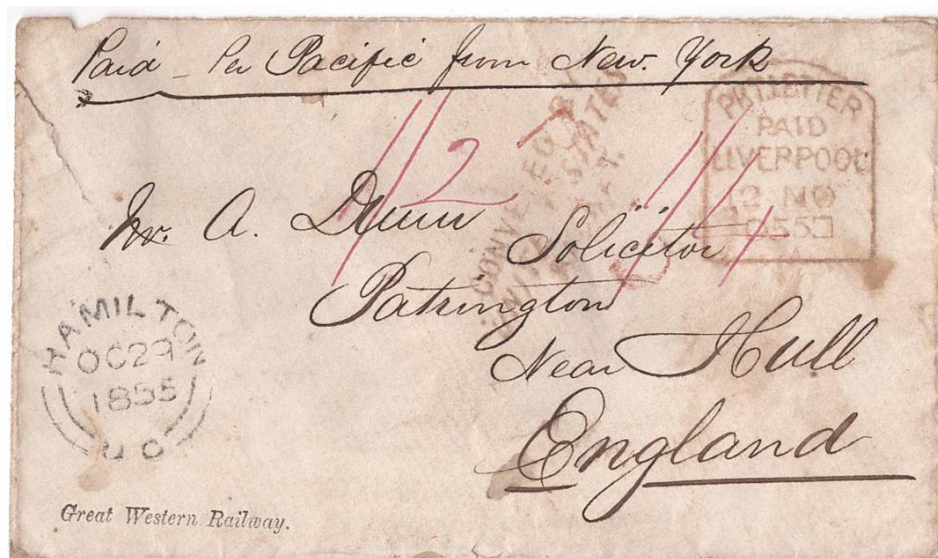 Paid - Per Pacific from New. York
PKT. LETTER
PAID
LIVERPOOL
2 NO
1855
1/2
1/1
Mr. A. Dunn
Solicitor
Patrington
Near Hull
England
HAMILTON
OC 29
1855
U C
Great Western Railway.